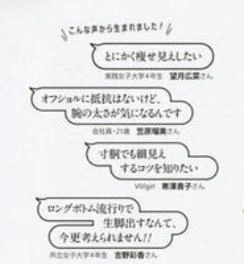 こんな声から生まれました!
とにかく痩せ見えしたい
実践女子大学4年生 望月広菜さん
オフショルに抵抗はないけど、
腕の太さが気になるんです
会社員・21歳 笠原瑠美さん
寸胴でも細見え
するコツを知りたい
ViVigirl 寒澤貴子さん
ロングボトム流行りで
生脚出すなんて、
今更考えられません!!
共立女子大学4年生 吉野彩香さん